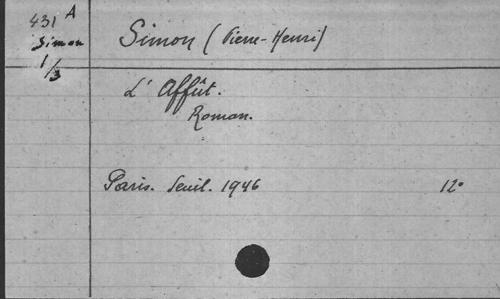 431 A
Simon
1/3
Simon (Pierre-Henri)
L' Affût.
Roman.
Paris. Seuil. 1946 12°